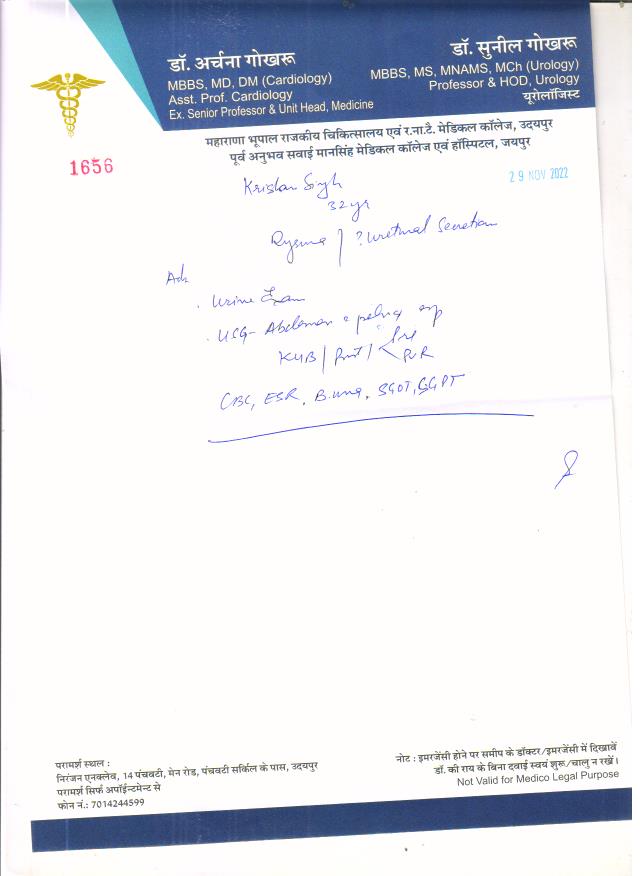 डॉ. अर्चना गोखरू
MBBS, MD, DM (Cardiology)
Asst. Prof. Cardiology
Ex. Senior Professor & Unit Head, Medicine
डॉ. सुनील गोखरू
MBBS, MS, MNAMS, MCh (Urology)
Professor & HOD, Urology
यूरोलॉजिस्ट
महाराणा भूपाल राजकीय चिकित्सालय एवं र.ना.टै. मेडिकल कॉलेज, उदयपुर
पूर्व अनुभव सवाई मानसिंह मेडिकल कॉलेज एवं हॉस्पिटल, जयपुर
1656
29 NOV 2022
Krishan Singh
32 yr
Adv
Urine Exam
USG- Abdomen pelvis
KUB / Prost / Pre
PVR
CBC, ESR, B. urea, SGOT, SGPT
परामर्श स्थल :
निरंजन एनक्लेव, 14 पंचवटी, मेन रोड, पंचवटी सर्किल के पास, उदयपुर
परामर्श सिर्फ अपॉईन्टमेन्ट से
फोन नं.: 7014244599
नोट : इमरजेंसी होने पर समीप के डॉक्टर/इमरजेंसी में दिखावें
डॉ. की राय के बिना दवाई स्वयं शुरू/चालु न रखें।
Not Valid for Medico Legal Purpose